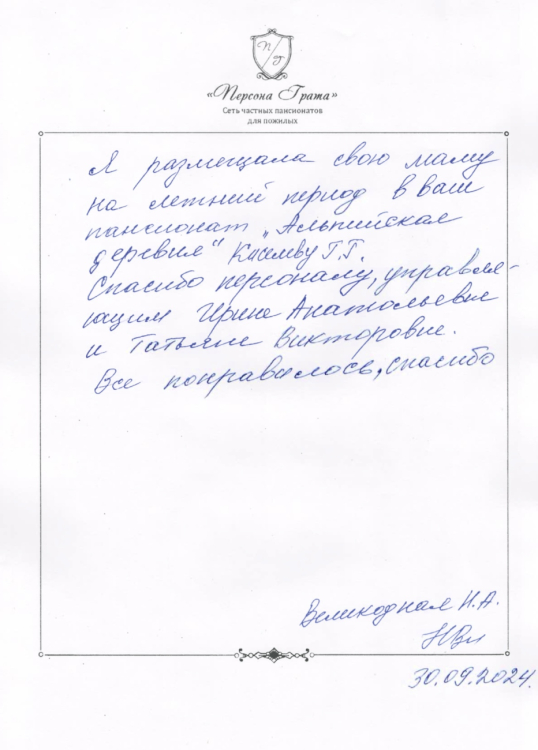 П/Г
«Персона Грата»
Сеть частных пансионатов
для пожилых
Я размещала свою маму
на летний период в ваш
пансионат „Альпийская
деревня"
Г.Г.
Спасибо персоналу, управля-
ющим Ирине Анатольевне
и Татьяне Викторовне.
Все понравилось, спасибо
Великодная Н.А.
30.09.2024.